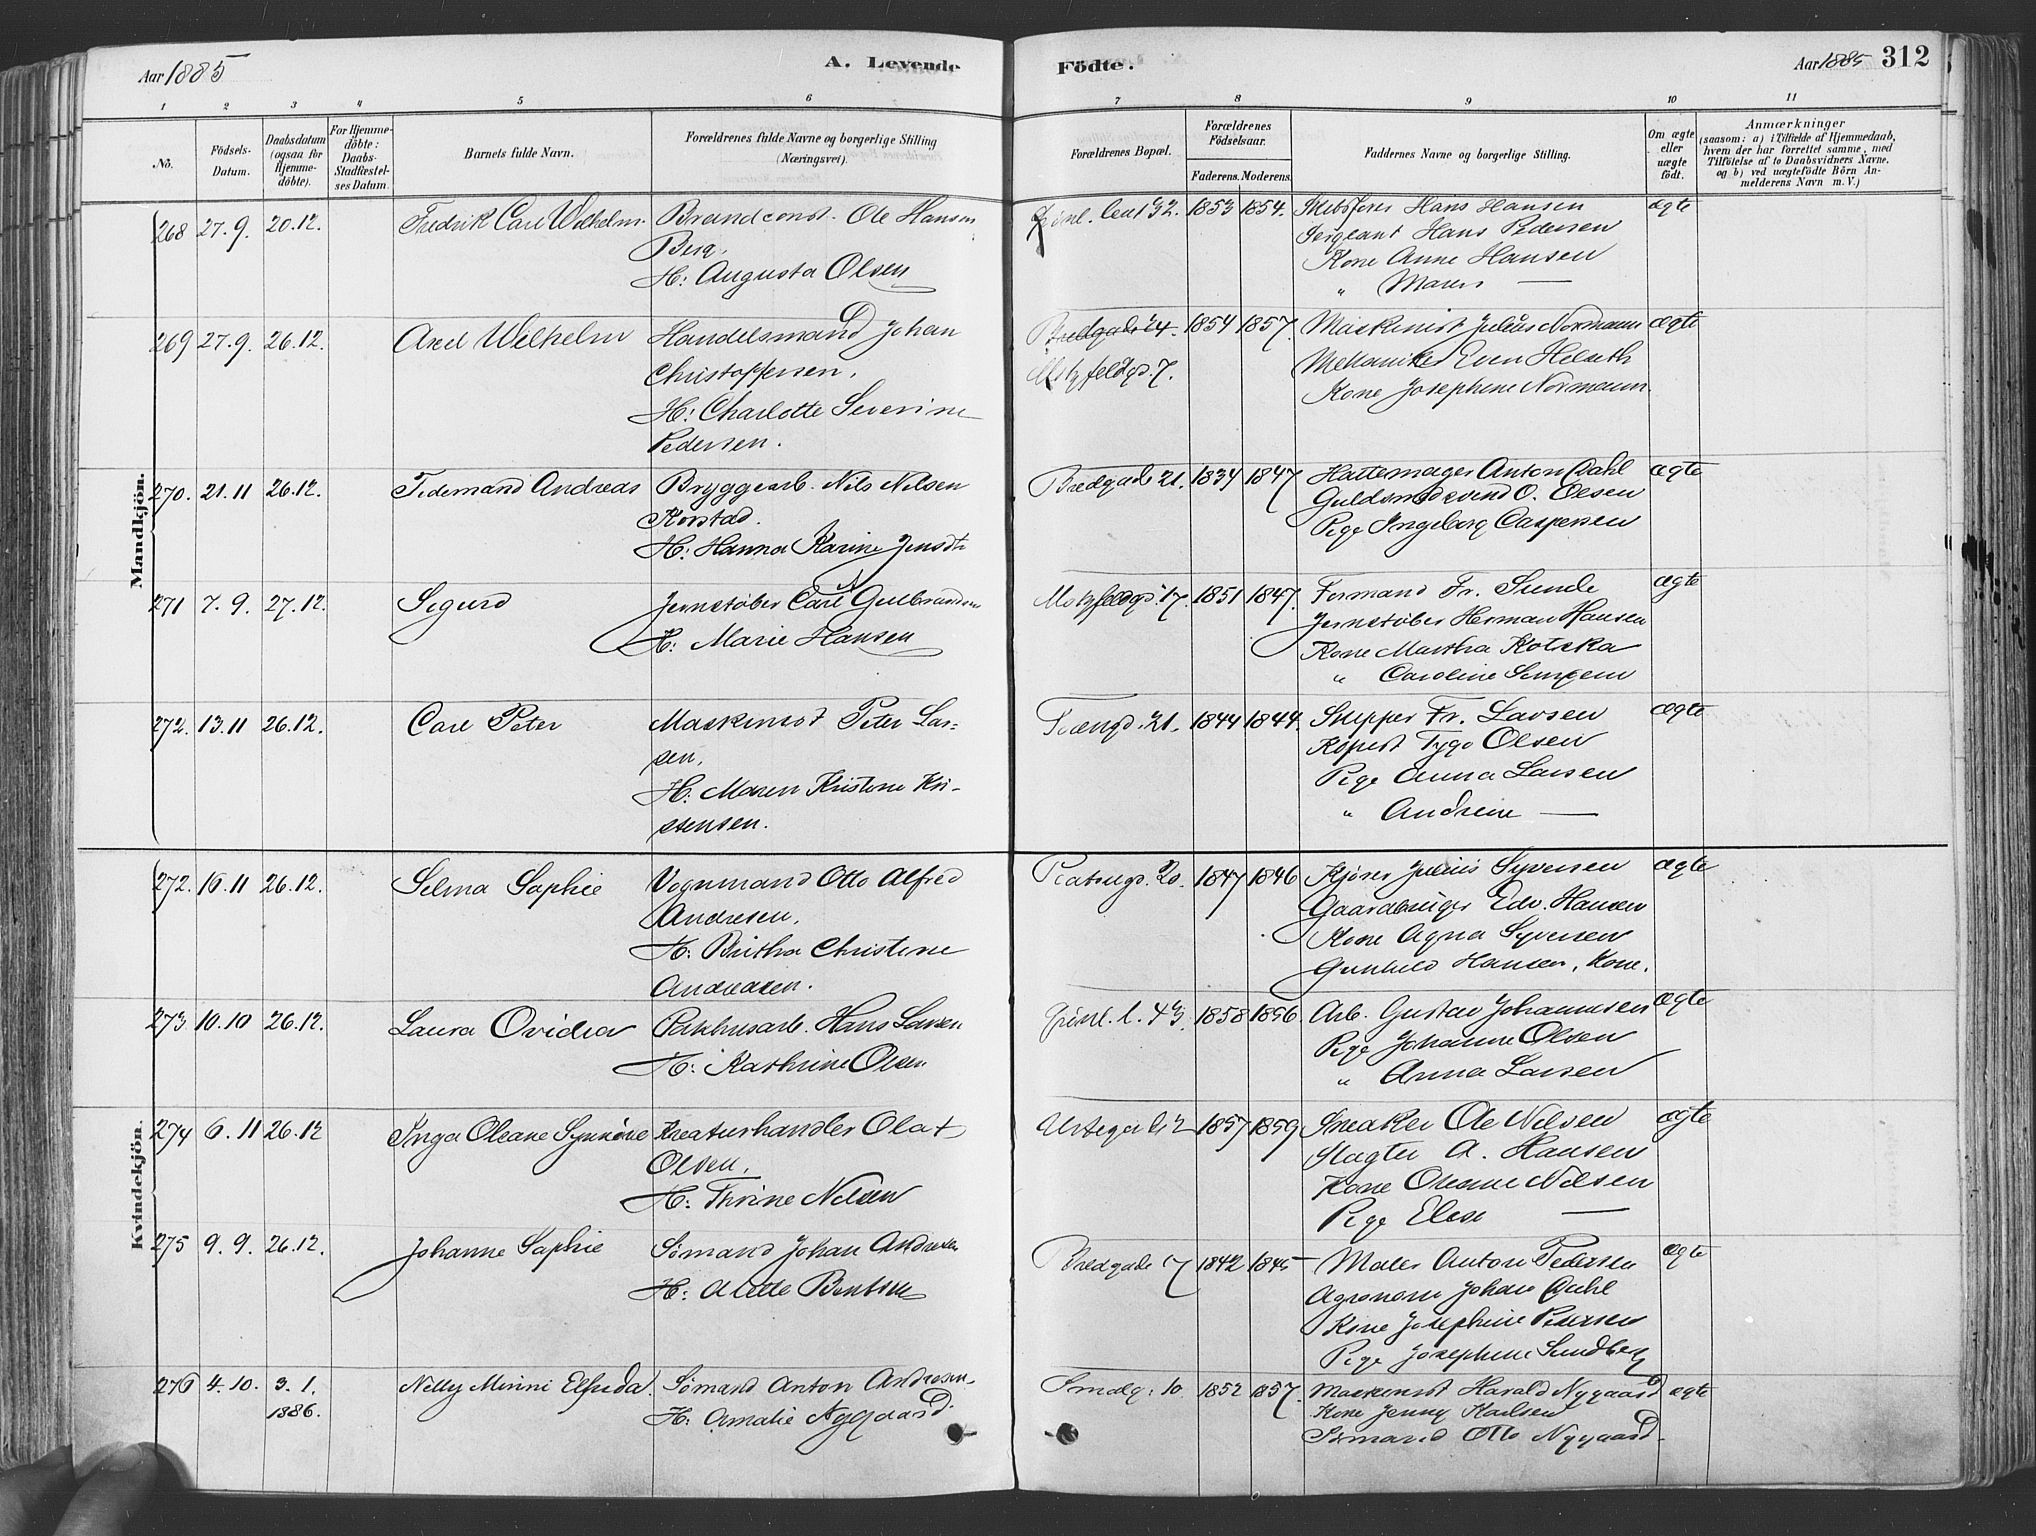 Aar 1885
A. Levende
Födte.
Aar 1885 312
1 2 3 4 5 6 7 8 9 10 11
No.
Födsels-
Datum.
Daabsdatum
(ogsaa for
Hjemme-
döbte).
For Hjemme-
döbte:
Daabs-
Stadfæstel-
ses Datum.
Barnets fulde Navn.
Forældrenes fulde Navne og borgerlige Stilling
(Næringsvei).
Forældrenes Bopæl.
Forældrenes
Födselsaar.
Faderens. Moderens.
Faddernes Navne og borgerlige Stilling.
Om ægte
eller
uægte
födt.
Anmærkninger
(saasom: a) i Tilfælde af Hjemmedaab,
hvem der har forrettet samme, med
Tilföielse af to Daabsvidners Navne,
og b) ved uægtefödte Börn An-
melderens Navn m.V.)
Mandkjön.
268 27.9. 20.12. Fredrik Carl Wilhelm. Brandconst. Ole Hansen
Berg.
H: Augusta Olsen
32. 1853 1854. Skibsfører Hans Hansen ægte
Sergeant Hans Pedersen
Kone Anne Hansen
" Maren —
269 27.9. 26.12. Axel Wilhelm Handelsmand Johan
Christoffersen,
H: Charlotte Severine
Pedersen.
Bredgade 24. 1854 1857. Maskinist Julius Normann ægte
Motzfeldgd. 7. Mekaniker Even Helseth
Kone Josephine Normann
270. 21.11 26.12. Tidemand Andreas Bryggearb. Nils Nilsen
Korstad.
H: Hanna Karine Jensdtr
Bredgade 21. 1834 1847 Hattemager Anton Dahl ægte
Guldsmed Svend O. Olsen
Pige Ingeborg Caspersen
271 7.9. 27.12. Sigurd Jernstøber Carl Gulbrandsen
H: Marie Hansen
Motzfeldgd. 17. 1851 1847. Formand Fr. Sunde ægte
Jernstøber Herman Hansen
Kone Martha Klotska
" Caroline
272. 13.11 26.12. Carl Peter Maskinist Peter Lar-
sen,
H: Maren Kristine Kri-
stensen.
Tvængd. 21. 1844 1844. Skipper Fr. Larsen ægte
Tygo Olsen
Pige Anna Larsen
" Andrine —
Kvindekjön.
272. 16.11 26.12. Selma Sophie Vognmand Otto Alfred
Andresen,
H: Britha Christine
Andreasen.
Platougd. 20. 1847 1846 Kjører Julius Syversen ægte
Gaardbruger Edv. Hansen
Kone Agna Syversen
Gunhild Hansen, Kone.
273 10.10 26.12. Laura Ovidia Pakhusarb. Hans Larsen
H: Kathrine Olsen
Grønl. l. 43. 1858 1856. Arb. Gustav Johannesen ægte
Pige Johanne Olsen
" Anna Larsen
274 6.11 26.12 Inga Oleane Synnøve Kreaturhandler Olaf
Olsen,
H: Thrine Nilsen
Urtegade 2 1857 1859. Snekker Ole Nilsen ægte
Slagter A. Hansen
Kone Oleane Nilsen
Pige Elise —
275 9.9. 26.12. Johanne Sophie Sømand Johan Andresen
H: Alette Bentsen
Bredgade 7 1842 1845 Maler Anton Pedersen ægte
Agronom Johan
Kone Josephine Pedersen
Pige Josephine Sundberg
276 4.10. 3.1. Nelly Minni Elfrida. Sømand Anton Andresen.
1886. H: Amalie Nygaard.
Smalg: 10. 1852 1857. Maskinist Harald Nygaard ægte
Kone Jenny Karlsen
Sømand Otto Nygaard.